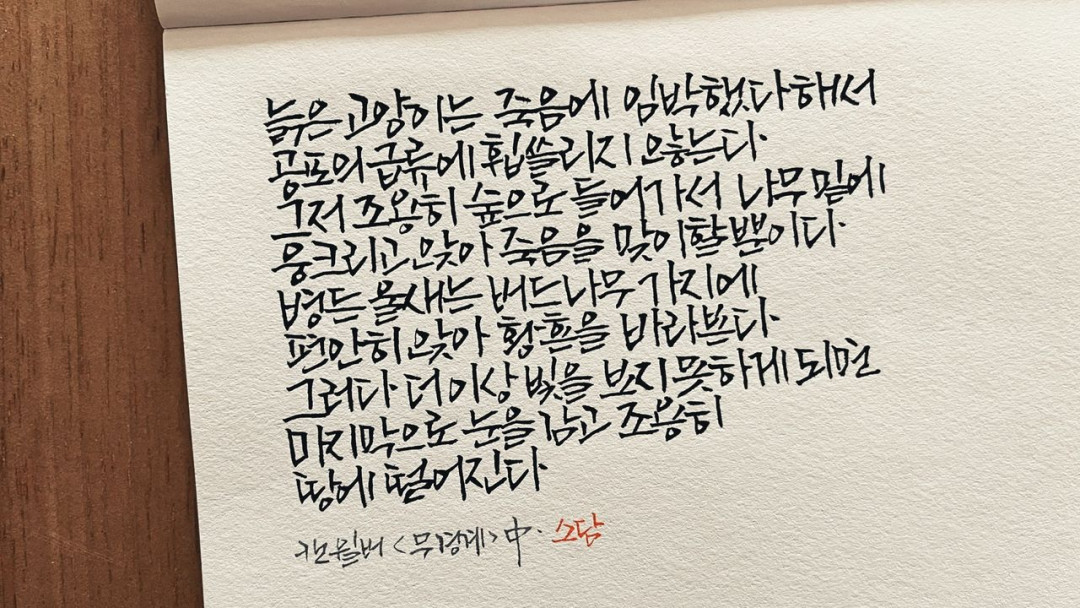 늙은 고양이는 죽음에 임박했다해서
공포의 급류에 휩쓸리지 않는다.
그저 조용히 숲으로 들어가서 나무 밑에
웅크리고 앉아 죽음을 맞이할 뿐이다.
병든 울새는 버드나무 가지에
편안히 앉아 황혼을 바라본다.
그러다 더이상 빛을 보지 못하게 되면
마지막으로 눈을 감고 조용히
땅에 떨어진다.
켄 윌버 <무경계> 中. 소담